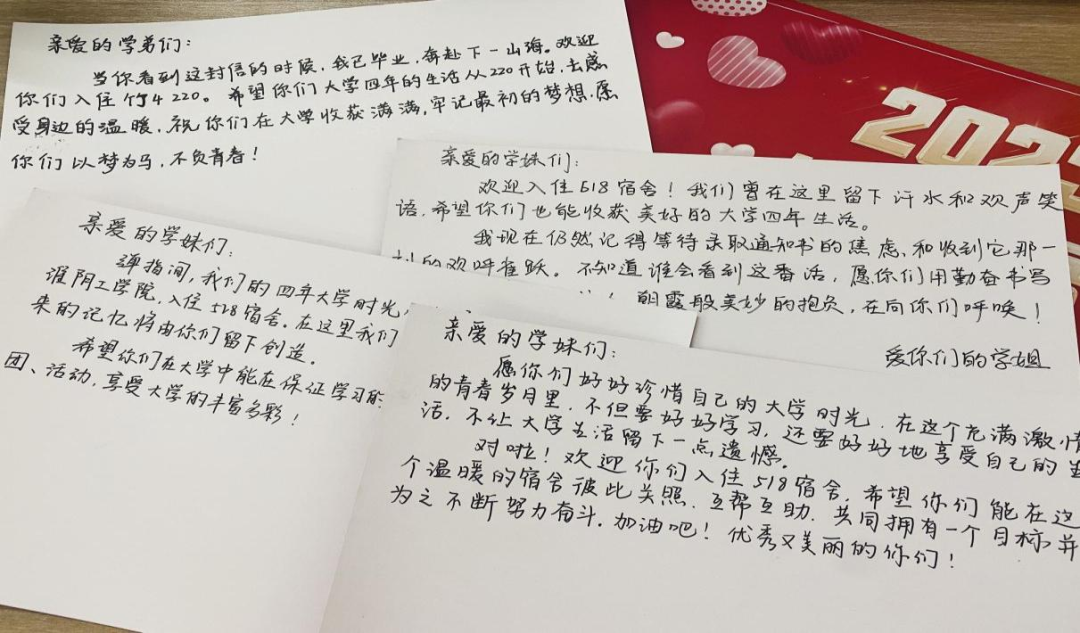 亲爱的学弟们：
当你看到这封信的时候，我已毕业，奔赴下一山海。欢迎
你们入住竹4 220。希望你们大学四年的生活从220开始，去感
受身边的温暖，祝你们在大学收获满满，牢记最初的梦想，愿
你们以梦为马，不负青春！
202
亲爱的学妹们：
欢迎入住518宿舍！我们曾在这里留下汗水和欢声笑
语，希望你们也能收获美好的大学四年生活。
我现在仍然记得等待录取通知书的焦虑、和收到它那一
的欢呼雀跃。不知道谁会看到这番话，愿你们用勤奋书写
！朝霞般美妙的抱负，在向你们呼唤！
爱你们的学姐
亲爱的学妹们：
弹指间，我们的四年大学时光，
淮阴工学院，入住518宿舍。在这里我们
来的记忆将由你们留下创造。
希望你们在大学中能在保证学习的
团、活动，享受大学的丰富多彩！
亲爱的学妹们：
愿你们好好珍惜自己的大学时光，在这个充满激情
的青春岁月里，不但要好好学习，还要好好地享受自己的生
活，不让大学生活留下一点遗憾。
对啦！欢迎你们入住518宿舍，希望你们能在这
个温暖的宿舍彼此关照、互帮互助、共同拥有一个目标并
为之不断努力奋斗，加油吧！优秀又美丽的你们！